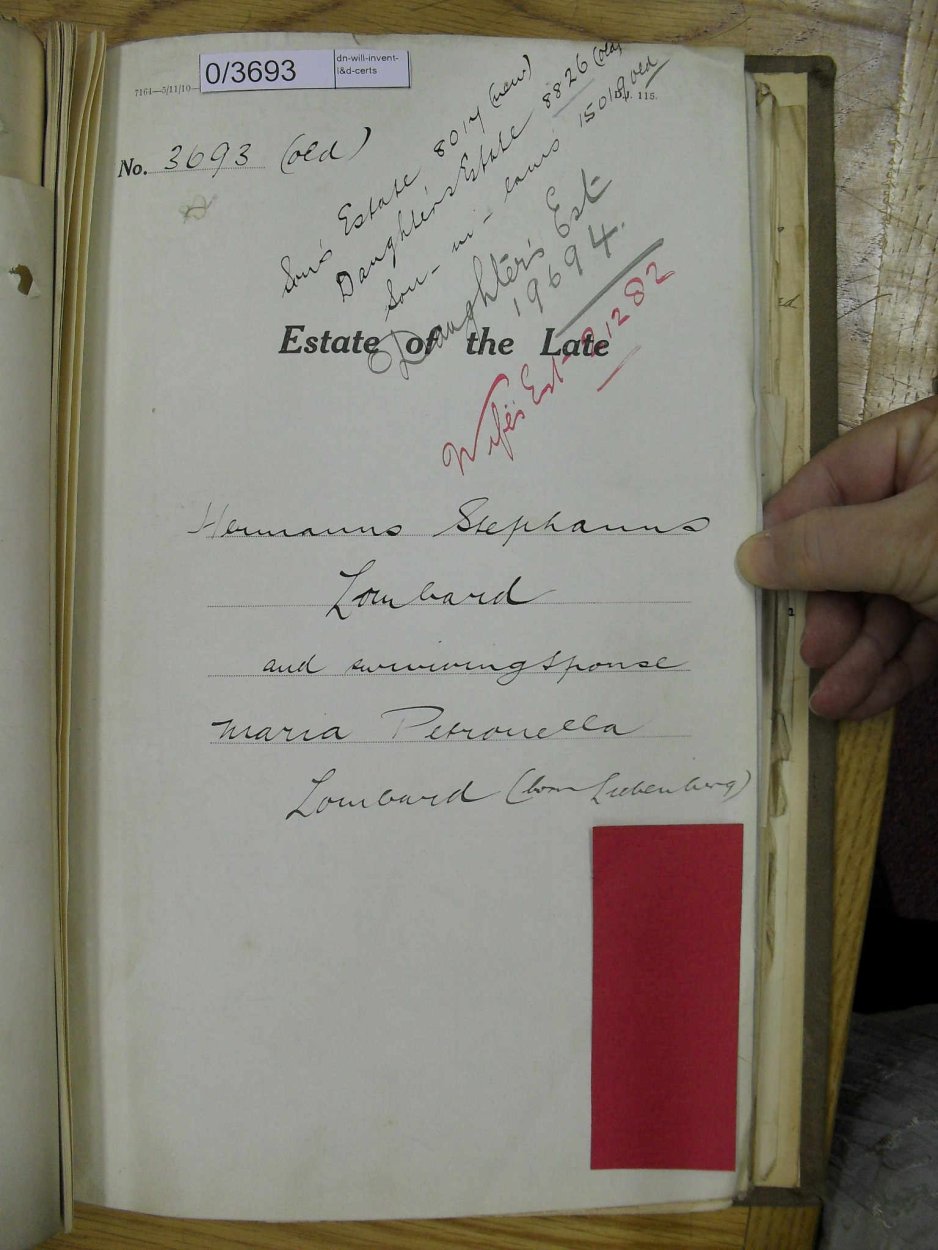 0/3693
dn-will-invent-
i&d-certs
7164—5/11/10—
D.J. 115.
No. 3693 (old)
Son's Estate 8017 (new)
Daughter's Estate 8826 (old)
Son-in-law's 15019 old
Daughter's Est-
19694.
Estate of the Late
Wife's Est- 21282
Hermanus Stephanus
Lombard
and surviving spouse
Maria Petronella
Lombard (born Liebenberg)